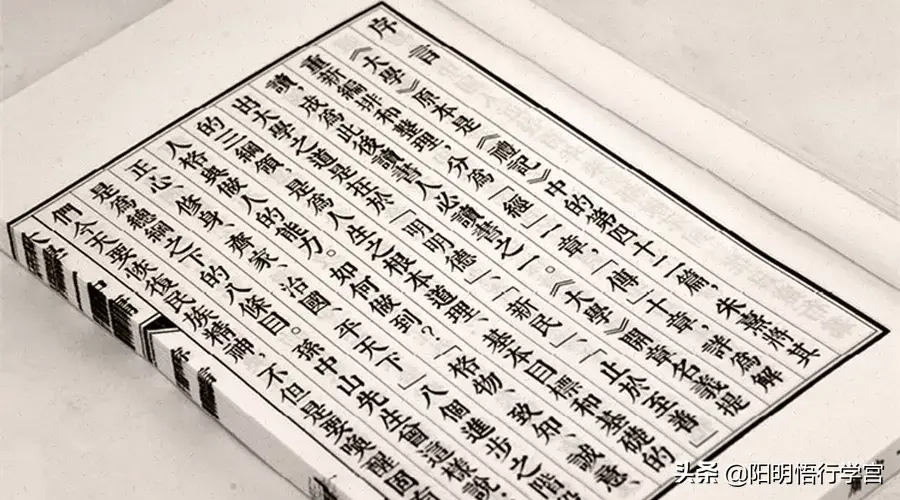 序言
《大學》原本是《禮記》中的第四十二篇，朱熹將其
重新編排和整理，分為「經」一章，「傳」十章，詳為解
讀，成為此後讀書人必讀書之一。《大學》開章名義提
出大學之道是在於「明明德」、「新民」、「止於至善」
的三綱領，是為人生之根本道理、基本目標和基礎的
人格與做人的能力。如何做到？「格物、致知、誠意、
正心、修身、齊家、治國、平天下」八個進步之階
是為總綱之下的八條目。孫中山先生曾這樣說，
們今天要恢復民族精神，不但是要喚醒固有
大學 中庸 序言
头条 @阳明悟行学宫